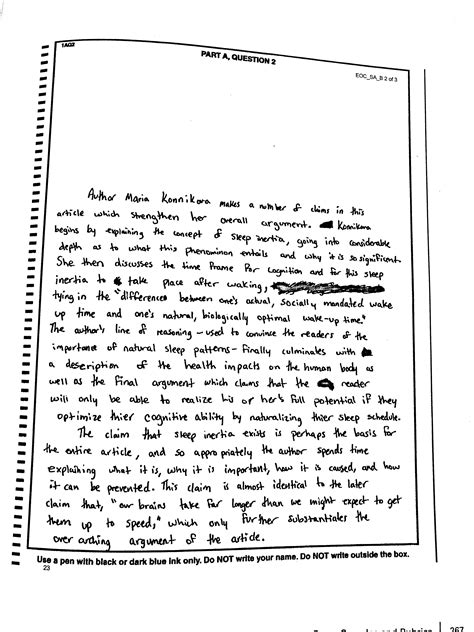 1AQ2
PART A, QUESTION 2
EOC_SA_B 2 of 3
Author Maria Konnikora makes a number of claims in this
article which strengthen her overall argument. Konnikora
begins by explaining the concept of sleep inertia, going into considerable
depth as to what this phenominon entails and why it is so significant.
She then discusses the time frame for cognition and for this sleep
inertia to take place after waking,
tying in the "difference between one's actual, socially mandated wake
up time and one's natural, biologically optimal wake-up time."
The author's line of reasoning - used to convince the readers of the
importance of natural sleep patterns - finally culminates with
a description of the health impacts on the human body as
well as the final argument which claims that the reader
will only be able to realize his or her's full potential if they
optimize thier cognitive ability by naturalizing thier sleep schedule.
The claim that sleep inertia exists is perhaps the basis for
the entire article, and so appropriately the author spends time
explaining what it is, why it is important, how it is caused, and how
it can be prevented. This claim is almost identical to the later
claim that, "our brains take far longer than we might expect to get
them up to speed," which only further substantiates the
over arching argument of the article.
Use a pen with black or dark blue ink only. Do NOT write your name. Do NOT write outside the box.
23
267